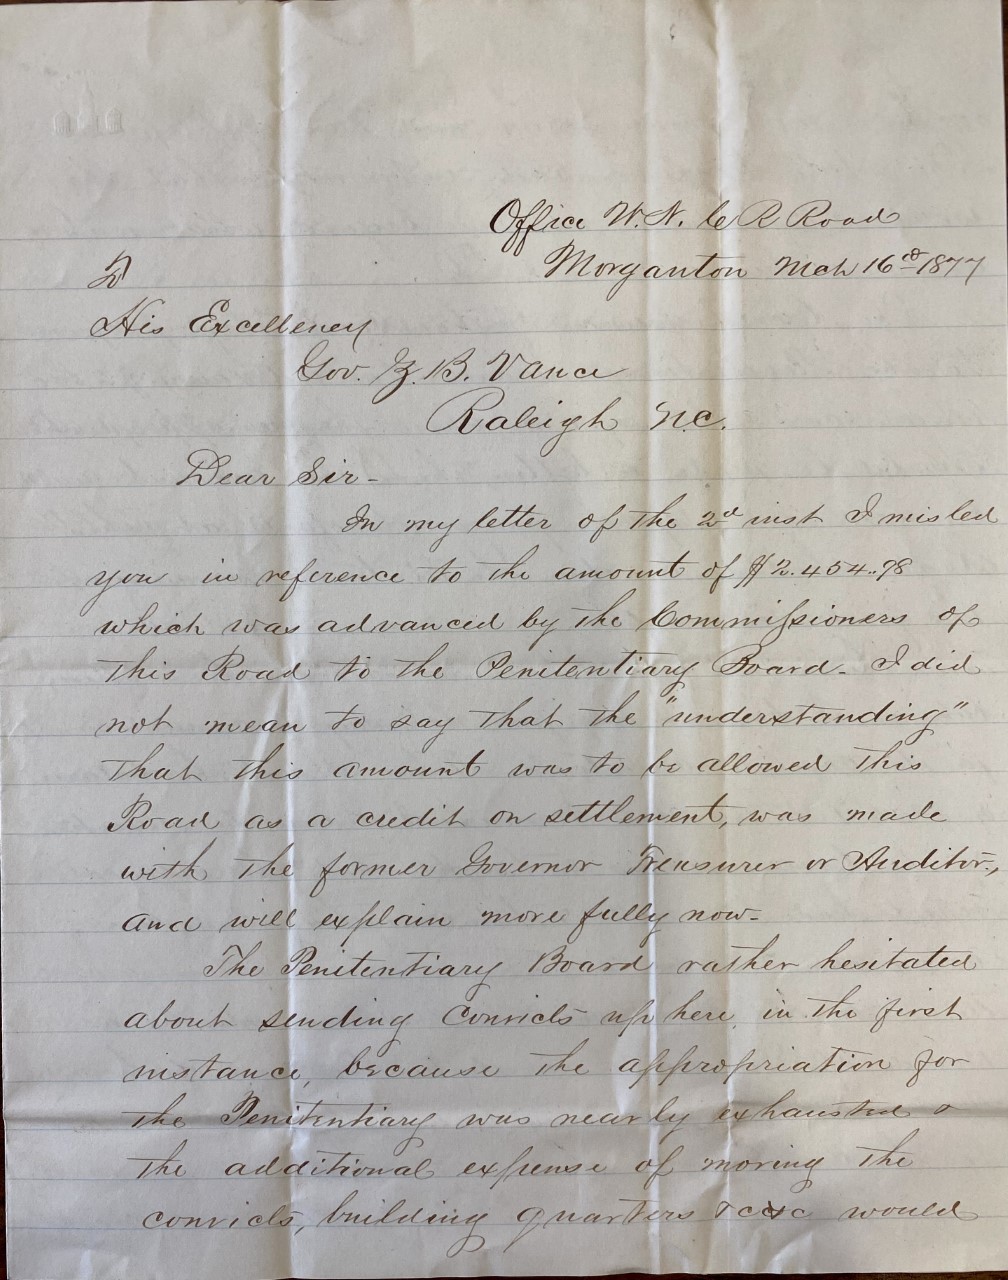 Office W. N. C R Road
Morganton Mch 16th 1877
To
His Excellency
Gov. Z. B. Vance
Raleigh N.C.
Dear Sir-
In my letter of the 2d inst I misled
you in reference to the amount of $2.454.98
which was advanced by the Commissioners of
this Road to the Penitentiary Board. I did
not mean to say that the "understanding"
that this amount was to be allowed this
Road as a credit on settlement, was made
with the former Governor Treasurer or Auditor,
and will explain more fully now-
The Penitentiary Board rather hesitated
about sending convicts up here, in the first
instance, because the appropriation for
the Penitentiary was nearly exhausted &
the additional expense of moving the
convicts, building quarters &c &c would